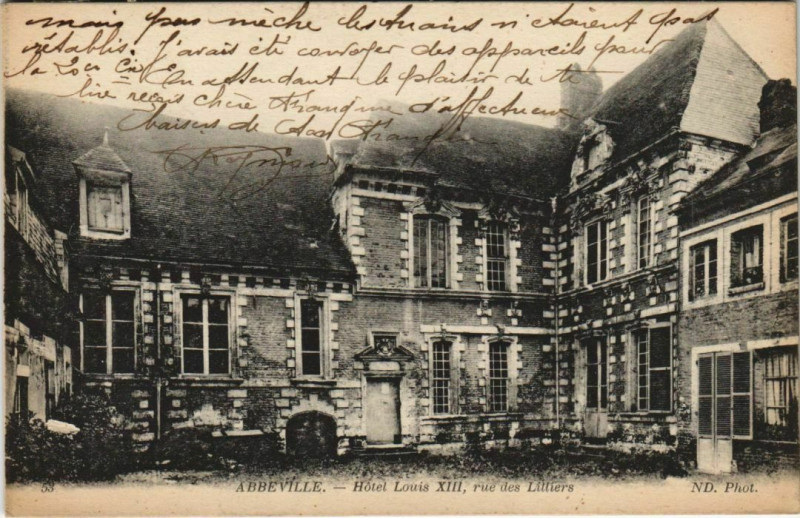 mais pas mèche les trains n'étaient pas
rétablis. J'avais été convoyer des appareils pour
la 2e Cie En attendant le plaisir de te
lire reçois chère Frangine d'affectueux
baisers de ton Frangin
53 ABBEVILLE. — Hôtel Louis XIII, rue des Lilliers ND. Phot.